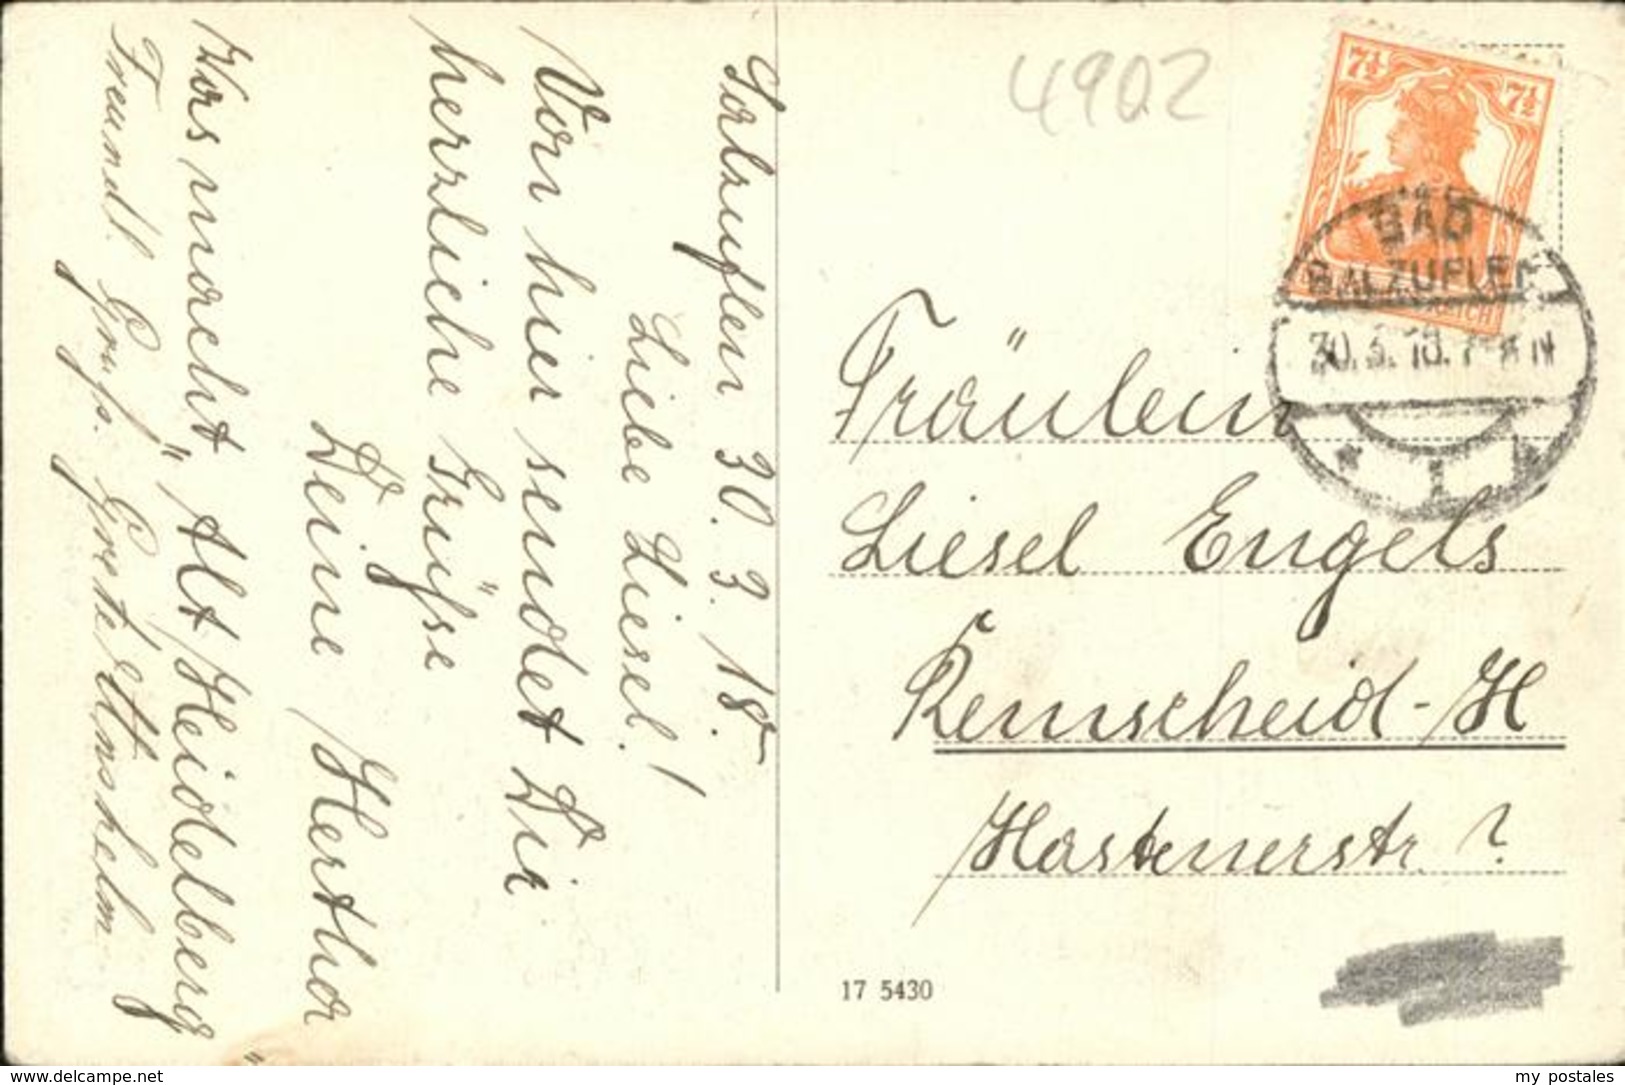 Salzuflen 30. 3. 18.
Liebe Liesel!
Von hier sendet Dir
herzliche Grüße
Deine Hertha
Was macht „Alt Heidelberg"
Freundl. Gruß. Grete
4902
7½ 7½
BAD
SALZUFLEN
30.3.18.7-8 N
Fräulein
Liesel Engels
Remscheid-H
Hastenerstr. ?
17 5430
www.delcampe.net
my postales